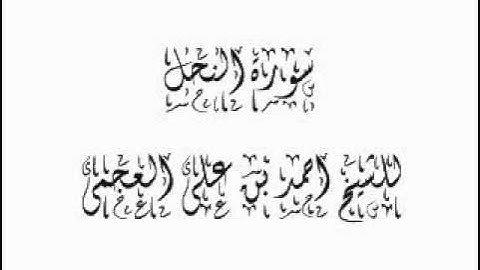 سورة النحل
للشيخ احمد بن على العجمى